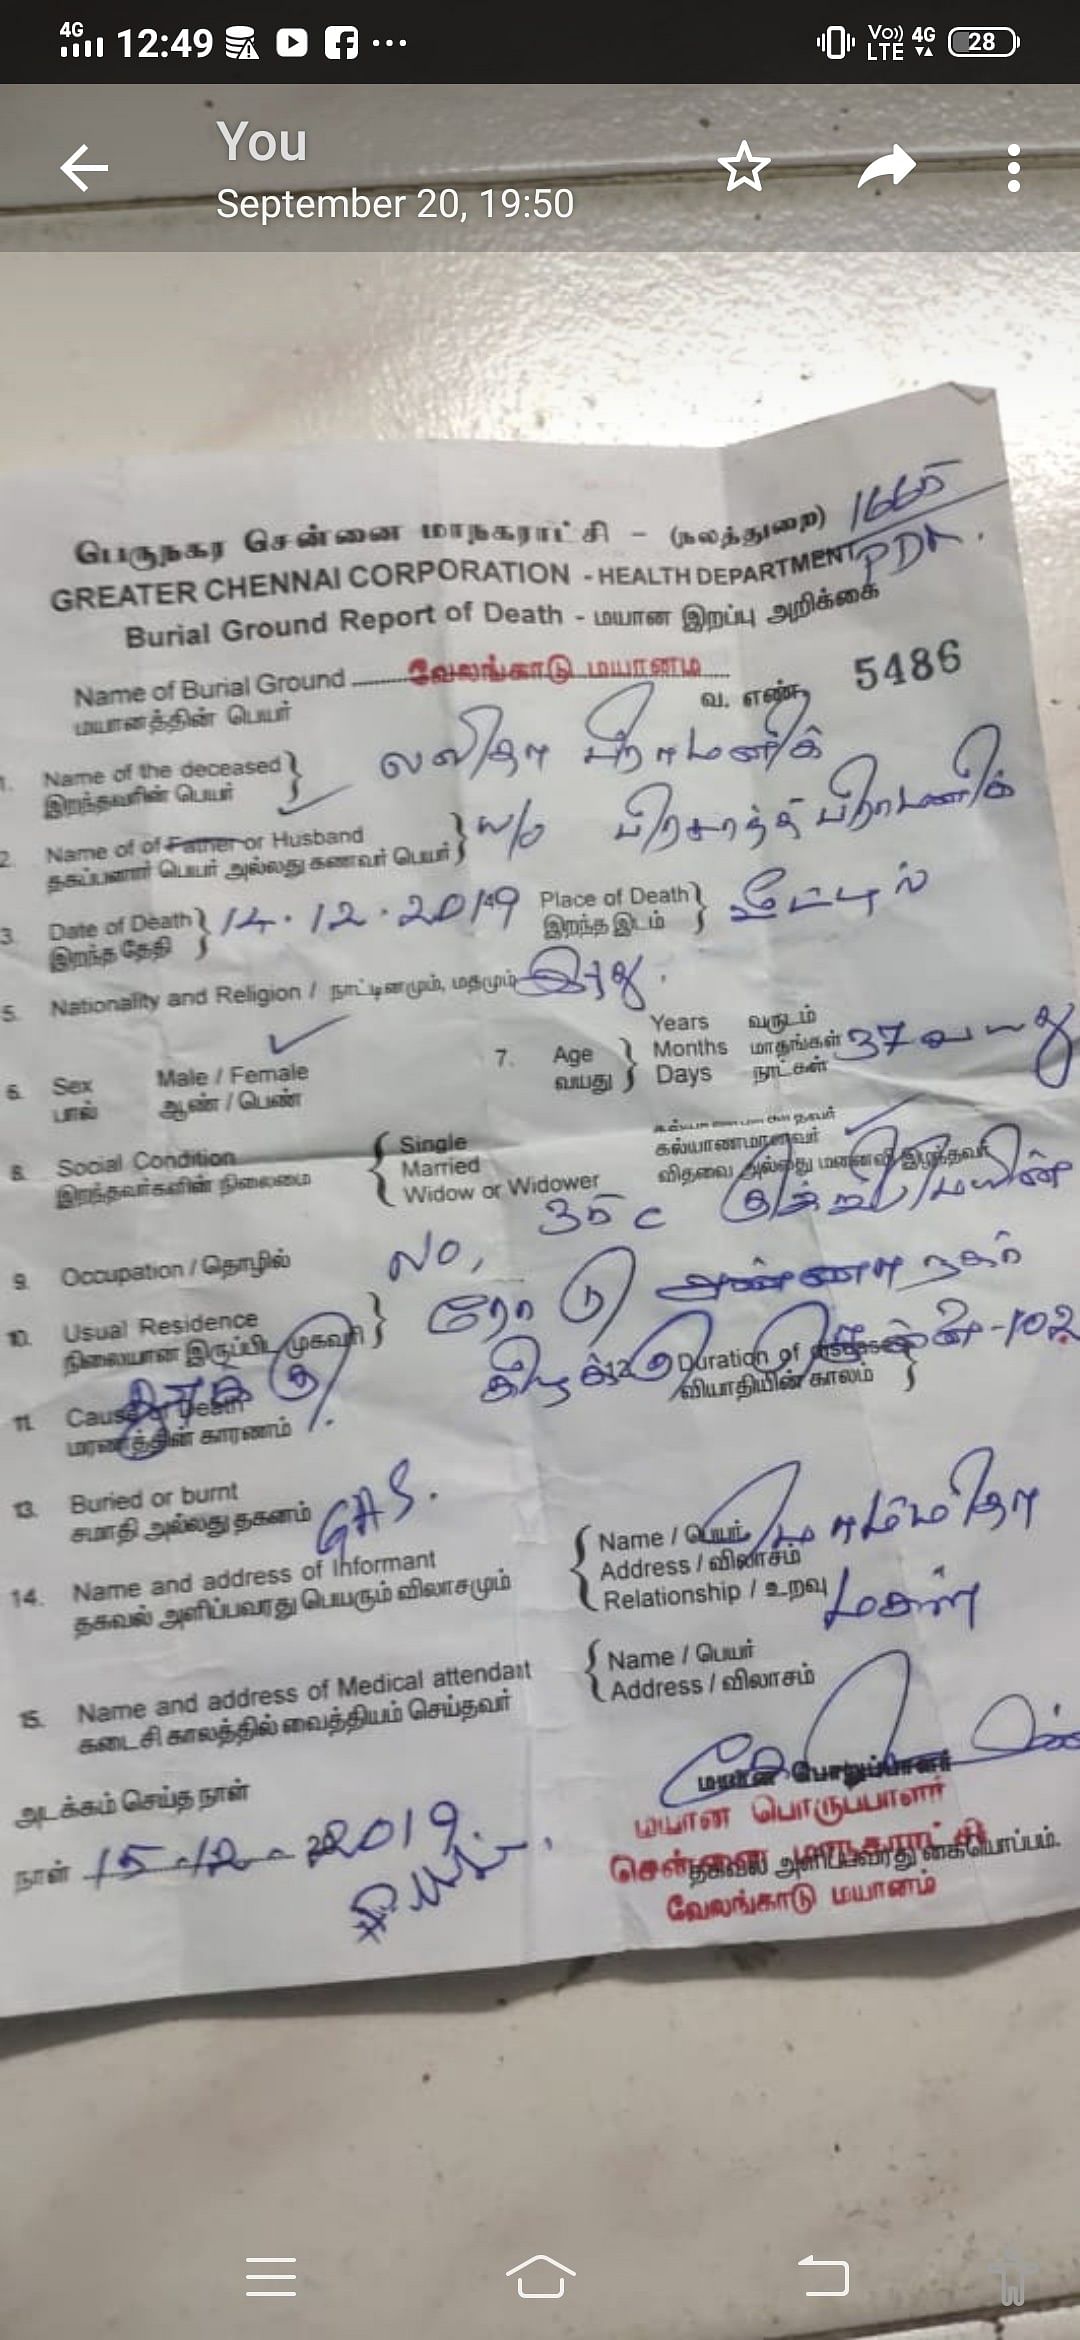 4G 12:49
Vo)) LTE 4G 28
You
September 20, 19:50
பெருநகர சென்னை மாநகராட்சி - (நலத்துறை) 1665
GREATER CHENNAI CORPORATION - HEALTH DEPARTMENT PDK.
Burial Ground Report of Death - மயான இறப்பு அறிக்கை
Name of Burial Ground வேலங்காடு மயானம்
மயானத்தின் பெயர் வ. எண். 5486
1. Name of the deceased லலிதா பிராமணிக்
இறந்தவரின் பெயர்
2. Name of of Father or Husband W/o பிரசாந்த் பிராமணிக்
தகப்பனார் பெயர் அல்லது கணவர் பெயர்
3. Date of Death 14.12.2019 Place of Death வீட்டில்
இறந்த தேதி இறந்த இடம்
5. Nationality and Religion / நாட்டினமும், மதமும் இந்து.
Years வருடம்
6. Sex Male / Female 7. Age Months மாதங்கள் 37 வயது
பால் ஆண் / பெண் வயது Days நாட்கள்
8. Social Condition Single
இறந்தவர்களின் நிலைமை Married கல்யாணமானவர்
Widow or Widower விதவை அல்லது மனைவி இழந்தவர்
9. Occupation / தொழில் No, 35 C
10. Usual Residence ரோடு அண்ணா நகர்
நிலையான இருப்பிட முகவரி கிழக்கு சென்னை-102
11. Cause of Death தூக்கு 12. Duration of disease
மரணத்தின் காரணம் வியாதியின் காலம்
13. Buried or burnt GAS.
சமாதி அல்லது தகனம்
14. Name and address of Informant Name / பெயர்
தகவல் அளிப்பவரது பெயரும் விலாசமும் Address / விலாசம்
Relationship / உறவு மகள்
15. Name and address of Medical attendant Name / பெயர்
கடைசி காலத்தில் வைத்தியம் செய்தவர் Address / விலாசம்
அடக்கம் செய்த நாள் மயான பொறுப்பாளர்
மயான பொருப்பாளர்
நாள் 15-12-2019 சென்னை மாநகராட்சி
தகவல் அளிப்பவரது கையொப்பம்.
வேலங்காடு மயானம்